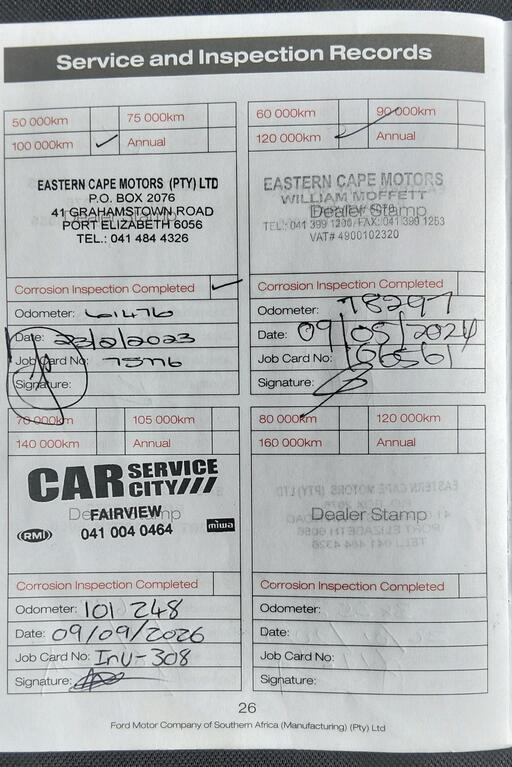 Service and Inspection Records
50 000km 75 000km
100 000km ✓ Annual
EASTERN CAPE MOTORS (PTY) LTD
P.O. BOX 2076
41 GRAHAMSTOWN ROAD
Dealer Stamp
PORT ELIZABETH 6056
TEL.: 041 484 4326
Corrosion Inspection Completed ✓
Odometer: 61476
Date: 23/2/2023
Job Card No:
Signature:
60 000km 90 000km
120 000km ✓ Annual
EASTERN CAPE MOTORS
WILLIAM MOFFETT
Dealer Stamp
TEL.: 041 399 1200/FAX: 041 399 1253
VAT# 4900102320
Corrosion Inspection Completed
Odometer: 78297
Date: 09/05/2024
Job Card No: 166561
Signature:
70 000km 105 000km
140 000km Annual
CAR SERVICE
CITY///
Dealer Stamp
FAIRVIEW
RMI 041 004 0464 miwa
Corrosion Inspection Completed
Odometer: 101 248
Date: 09/09/2026
Job Card No: Inv-308
Signature:
80 000km 120 000km
160 000km Annual
Dealer Stamp
Corrosion Inspection Completed
Odometer:
Date:
Job Card No:
Signature:
26
Ford Motor Company of Southern Africa (Manufacturing) (Pty) Ltd